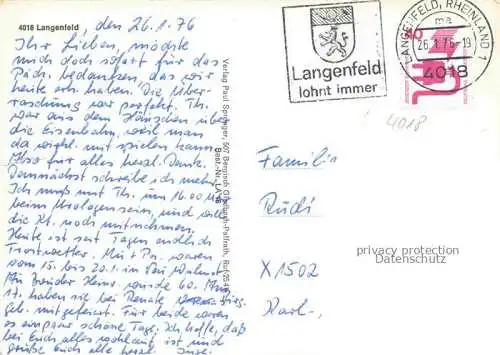 4018 Langenfeld
den 26.1.76
Ihr Lieben, möchte
mich doch sofort für das
Päch. bedanken, das wir
heute erh. haben. Die Über-
raschung war perfekt. Th.
war aus dem Häuschen über
die Eisenbahn, weil man
da wirkl. mit spielen kann.
Also für alles herzl. Dank.
Demnächst schreibe ich mehr.
Ich muß mit Th. um 16.00 Uhr
beim sein, und will
die Kt. noch mitnehmen.
Heute ist seit Tagen endlich
Frostwetter. waren
vom 15. bis 20.1. in
Bruder wurde 60. Am
17. haben sie bei Renate
geb. mit gefeiert. Für beide waren
es ein paar schöne Tage. Ich hoffe, daß
bei Euch alles wohlauf ist und
grüße Euch alle herzl.
Langenfeld
lohnt immer
LANGENFELD, RHEINLAND 1
ma
26.1.76-19
4018
4018
Familie
Rudi
X 1502
Karl-,
privacy protection
Datenschutz